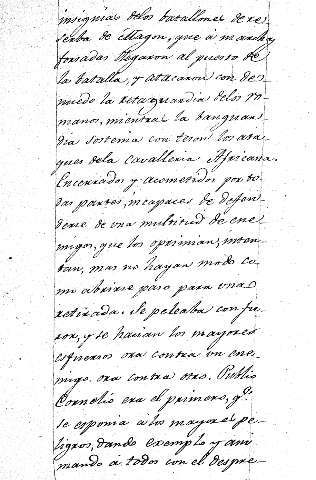 insignias delos batallones de re-
serba de Magon, que á marchas
forsadas llegaron al puesto de
la batalla, y atacaron con de-
nuedo la retaguardia delos ro-
manos, mientras la banguar-
dia sostenia con teson los ata-
ques dela cavalleria Africana.
Encerrados y acometidos por to-
das partes, incapaces de defen-
derse de una multitud de ene-
migos, que los oprimian, inten-
tan, mas no hayan modo co-
mo abrirse paso para una
retirada. Se peleaba con fu-
ror, y se hacian los mayores
esfuerzos ora contra un ene-
migo, ora contra otro. Publio
Cornelio era el primero, qe.
se esponia a los mayores pe-
ligros, dando exemplo y ani-
mando á todos con el despre-